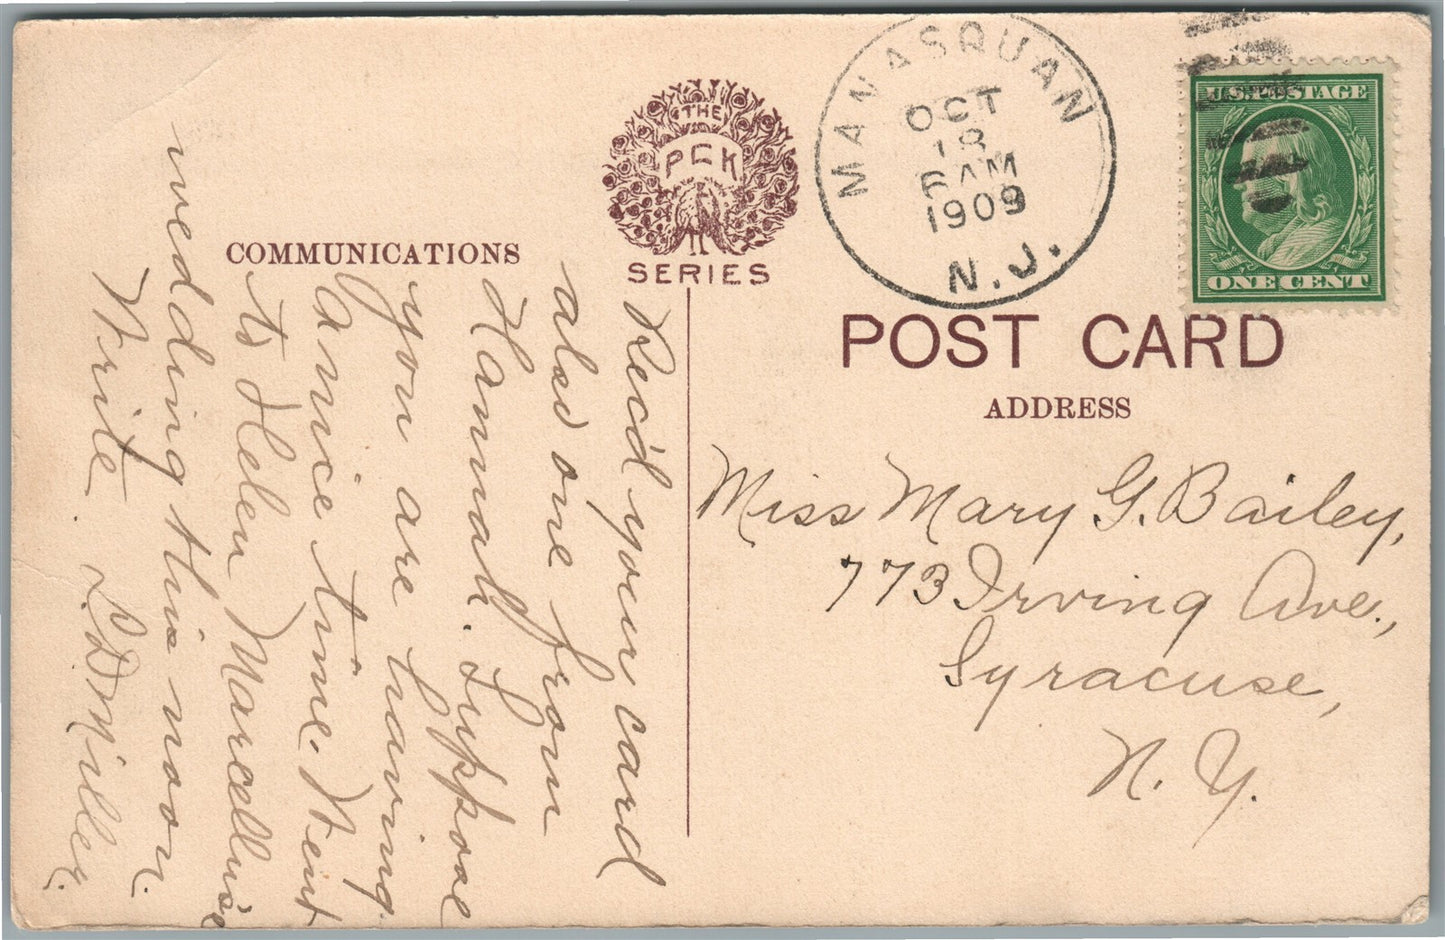 THE
PCK
SERIES
MANASQUAN
OCT
18
6 AM
1909
N.J.
U.S. POSTAGE
ONE CENT
COMMUNICATIONS
POST CARD
ADDRESS
Rec'd your card
also one from
Hannah. Suppose
you are having
a nice time. Went
to Helen Marcellus's
wedding this noon.
Write. L. D. Miller.
Miss Mary G. Bailey,
773 Irving Ave.,
Syracuse,
N. Y.